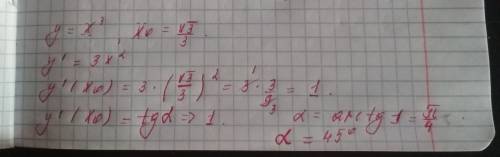 y = x³, x₀ = √3/3.
y' = 3x²
y'(x₀) = 3 · (√3/3)² = 3̸¹ · 3/9̸₃ = 1.
y'(x₀) = tg α => 1. α = arctg 1 = π/4
α = 45°